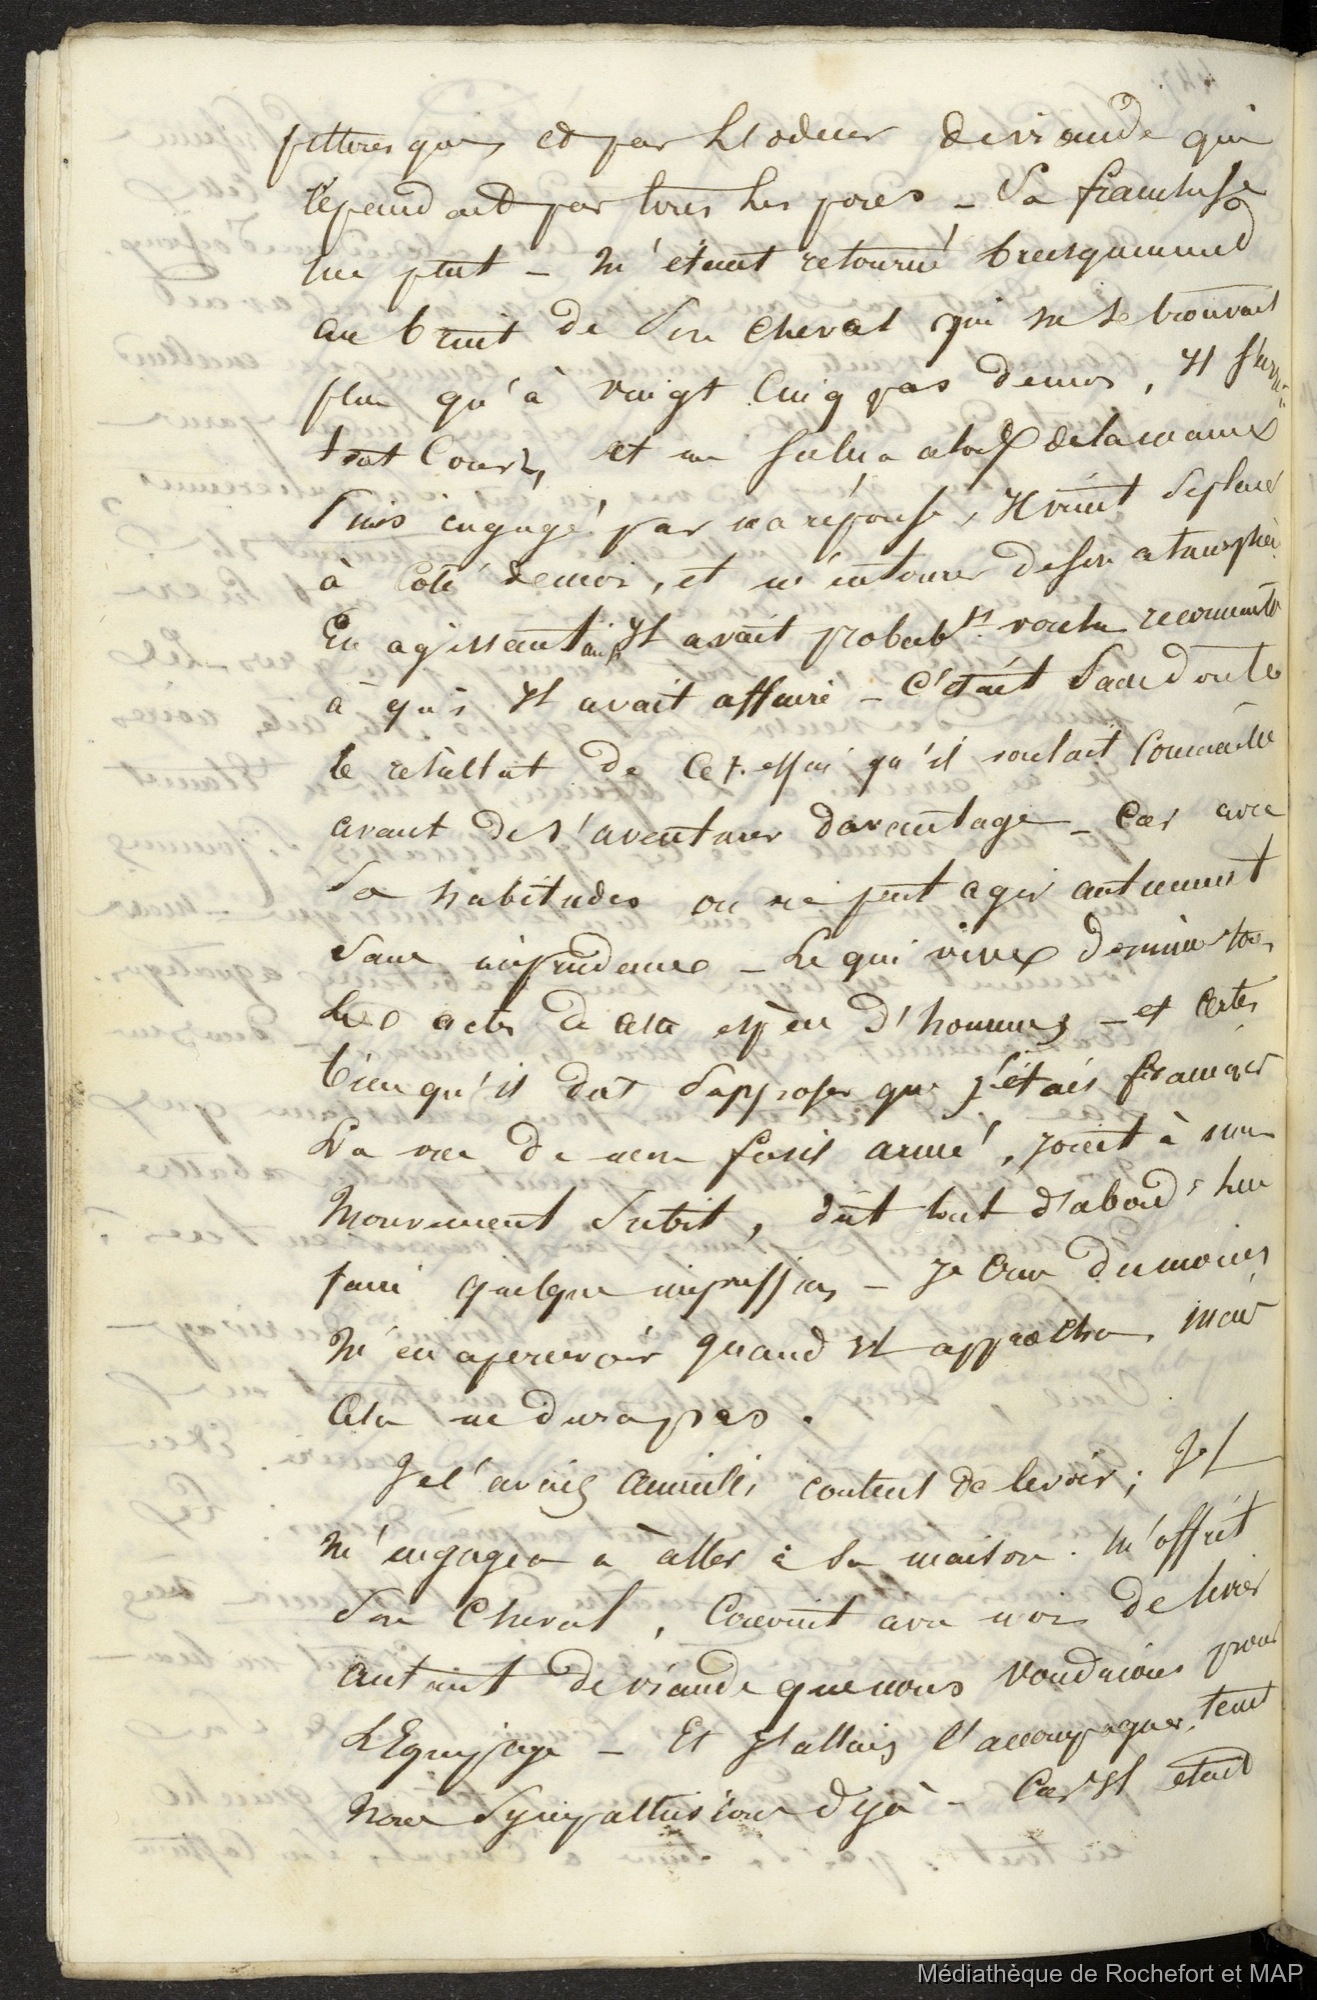 pittoresque, et par l'odeur de viande qui
répendait par tous les pores _ Sa franchise
me plut _ M'étant retourné brusquement
au bruit de son cheval qui ne se trouvait
plus qu'à vingt cinq pas de moi, Il s'arrêta
tout court, et me salua alors de la main
Puis engagé par ma réponse, Il vint se placer
à côté de moi, et m'entourer de son atmosphère
En agissant ainsi Il avait probablt voulu reconnaitre
à qui Il avait affaire _ C'était sans doute
le résultat de cet essai qu'il voulait connaitre
avant de s'aventurer davantage _ Car avec
sa habitudes on ne peut agir autrement
sans imprudence _ Le qui vive domine tous
les actes de cette espèce d'hommes _ et certes
bien qu'il dut supposer que j'étais français
La vue de mon fusil armé, joint à mon
mouvement subit, dût tout d'abord lui
faire quelque impression _ Je crus du moins
m'en apercevoir quand Il approcha, mais
cela ne dura pas.
Je l'avais accueilli content de le voir; Il
m'engagea à aller à sa maison. M'offrit
son cheval, Convint avec moi de livrer
autant de viande que nous voudrions pour
L'Equipage _ Et J'allais l'accompagner, tant
nous sympathisions déjà _ Car Il était
Médiathèque de Rochefort et MAP